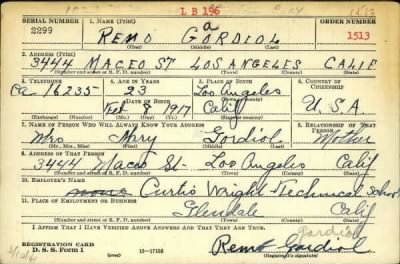 L B 196
SERIAL NUMBER 1. NAME (Print) a ORDER NUMBER
2299 REMO GORDIOL 1513
(First) (Middle) (Last)
2. ADDRESS (Print)
3444 MACEO ST LOS ANGELES CALIF
(Number and street or R. F. D. number) (Town) (County) (State)
3. TELEPHONE 4. AGE IN YEARS 5. PLACE OF BIRTH 6. COUNTRY OF CITIZENSHIP
Ca 16235 23 Los Angeles
DATE OF BIRTH (Town or county)
Feb 8 1917 Calif U.S.A
(Exchange) (Number) (Mo.) (Day) (Yr.) (State or country)
7. NAME OF PERSON WHO WILL ALWAYS KNOW YOUR ADDRESS 8. RELATIONSHIP OF THAT PERSON
Mrs Mary Gordiol Mother
(Mr., Mrs., Miss) (First) (Middle) (Last)
9. ADDRESS OF THAT PERSON
3444 Maceo St- Los Angeles Calif
(Number and street or R. F. D. number) (Town) (County) (State)
10. EMPLOYER'S NAME
Curtis Wright Technical School
11. PLACE OF EMPLOYMENT OR BUSINESS
Glendale Calif
(Number and street or R. F. D. number) (Town) (County) (State)
I AFFIRM THAT I HAVE VERIFIED ABOVE ANSWERS AND THAT THEY ARE TRUE.
Gardiol
REGISTRATION CARD
D. S. S. Form 1 16—17105 Remo Gardiol
(Registrant's signature)